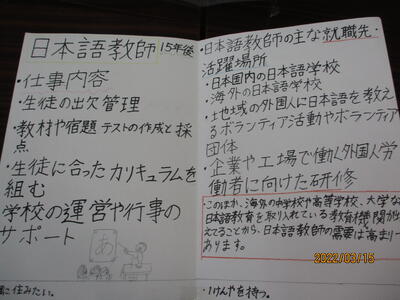 日本語教師 15年後
・仕事内容
・生徒の出欠管理
・教材や宿題テストの作成と採
点
・生徒に合ったカリキュラムを
組む
学校の運営や行事の
サポート
あ
に住みたい。
・日本語教師の主な就職先・
活躍場所
・日本国内の日本語学校
・海外の日本語学校
・土地域の外国人に日本語を教え
るボランティア活動やボランティア
団体
・企業や工場で働く外国人労
働者に向けた研修
このほか、海外の中学校や高等学校、大学な
日本語教育を取り入れている教育機関が
えてることから、日本語教師の需要は高まり
あります。
2022/03/15
・1けんやを持つ。